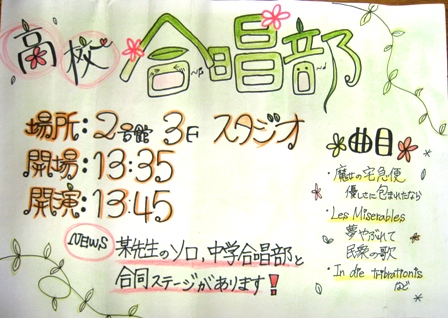 高校 合唱部
場所:2号館 3F スタジオ
開場:13:35
開演:13:45
NEWS 某先生のソロ、中学合唱部と
合同ステージがあります!
曲目
・魔女の宅急便
優しさに包まれたなら
・Les Miserables
夢やぶれて
民衆の歌
・In die tribrationis
など